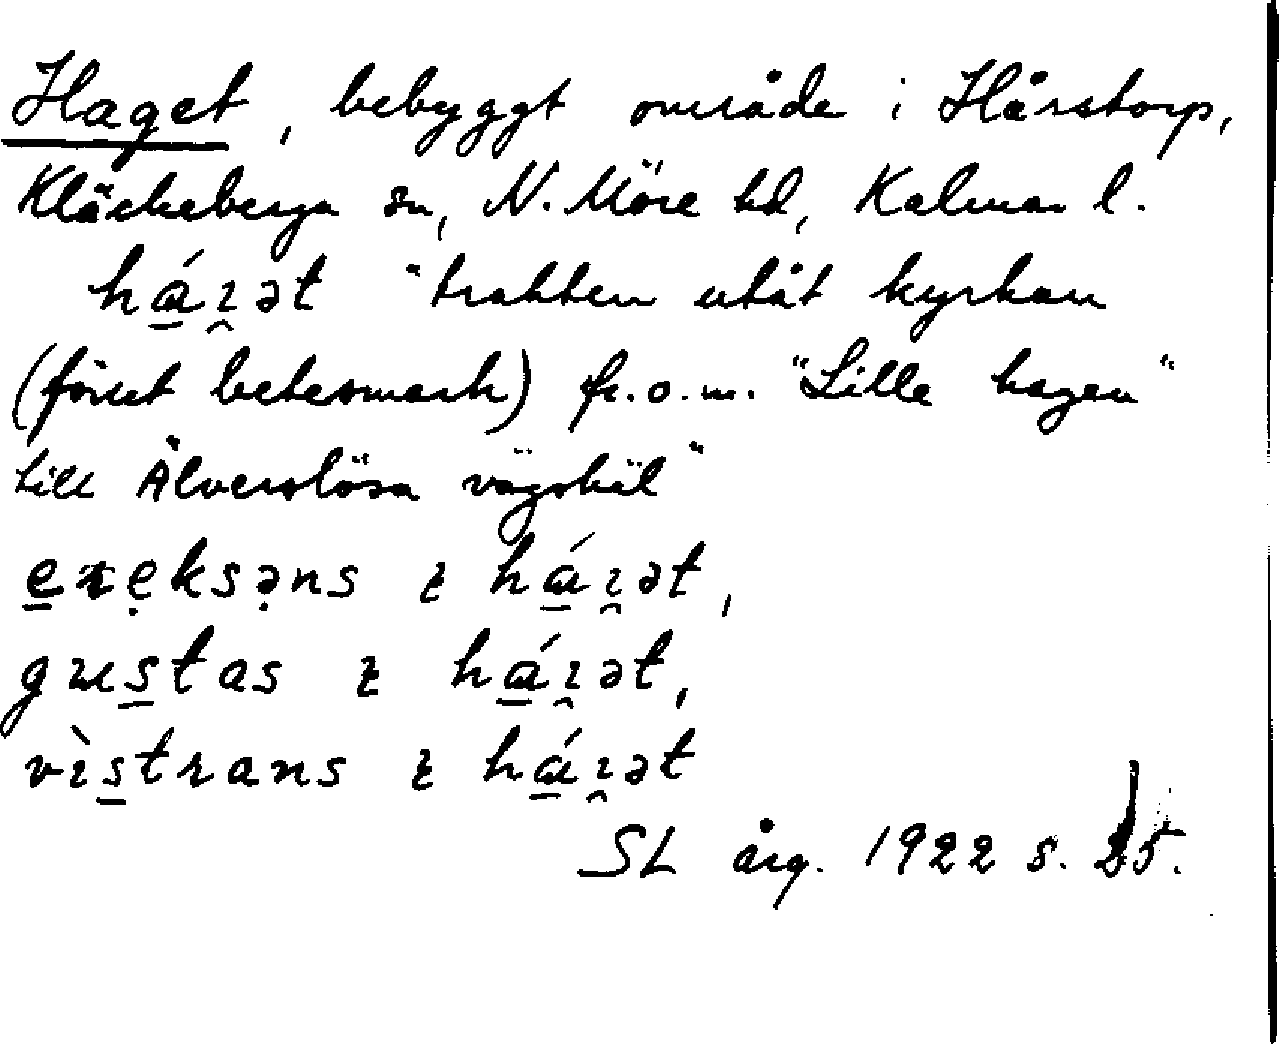 Haget, bebyggt område i Hårstorp,
Kläckeberga sn, N. Möre hd, Kalmar l.
há̱ı̯ət "trakten utåt kyrkan
(förut betesmark) fr.o.m. "Lille hagen"
till Ålverslösa vägskäl"
ẹksə̣ns ɪ há̱ı̯ət,
gus̱tas ɪ há̱ı̯ət,
vìs̱trans ɪ há̱ı̯ət
SL årg. 1922 s. 25.